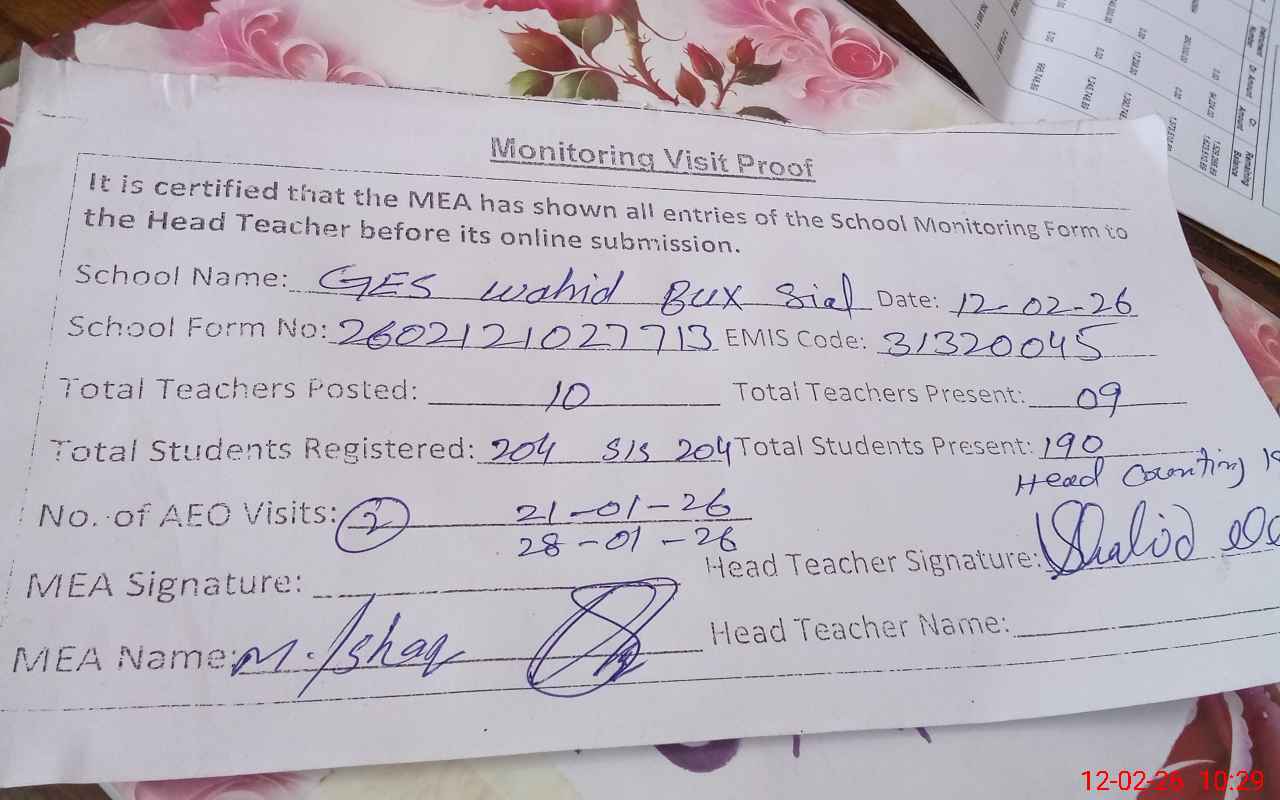 Monitoring Visit Proof
It is certified that the MEA has shown all entries of the School Monitoring Form to
the Head Teacher before its online submission.
School Name: GES Wahid Bux Sial Date: 12-02-26
School Form No: 2602121027713 EMIS Code: 31320045
Total Teachers Posted: 10 Total Teachers Present: 09
Total Students Registered: 204 SIS 204 Total Students Present: 190
Head Counting
No. of AEO Visits: 2 21-01-26
28-01-26
Head Teacher Signature: Shahid
MEA Signature:
MEA Name: M. Ishaq Head Teacher Name:
12-02-26 10:29